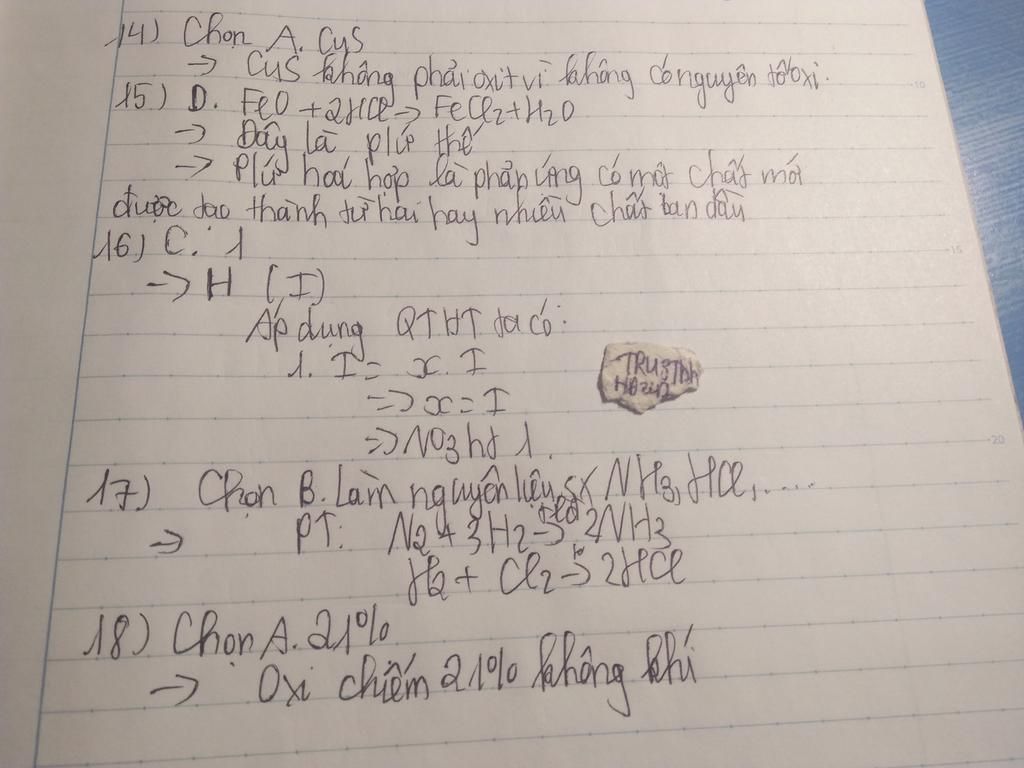 14) Chọn A. CuS
→ CuS không phải oxit vì không có nguyên tố oxi.
15) D. FeO + 2HCl → FeCl2 + H2O
→ Đây là pứ thế
→ Pứ hoá hợp là phản ứng có một chất mới
được tạo thành từ hai hay nhiều chất ban đầu
16) C. 1
→ H (I)
Áp dụng QTHT ta có:
1. I = x. I
=> x = I
=> NO3 ht 1.
17) Chọn B. Làm nguyên liệu sx NH3, HCl, ....
→ PT: N2 + 3H2 → 2NH3
H2 + Cl2 → 2HCl
18) Chọn A. 21%
→ Oxi chiếm 21% không khí